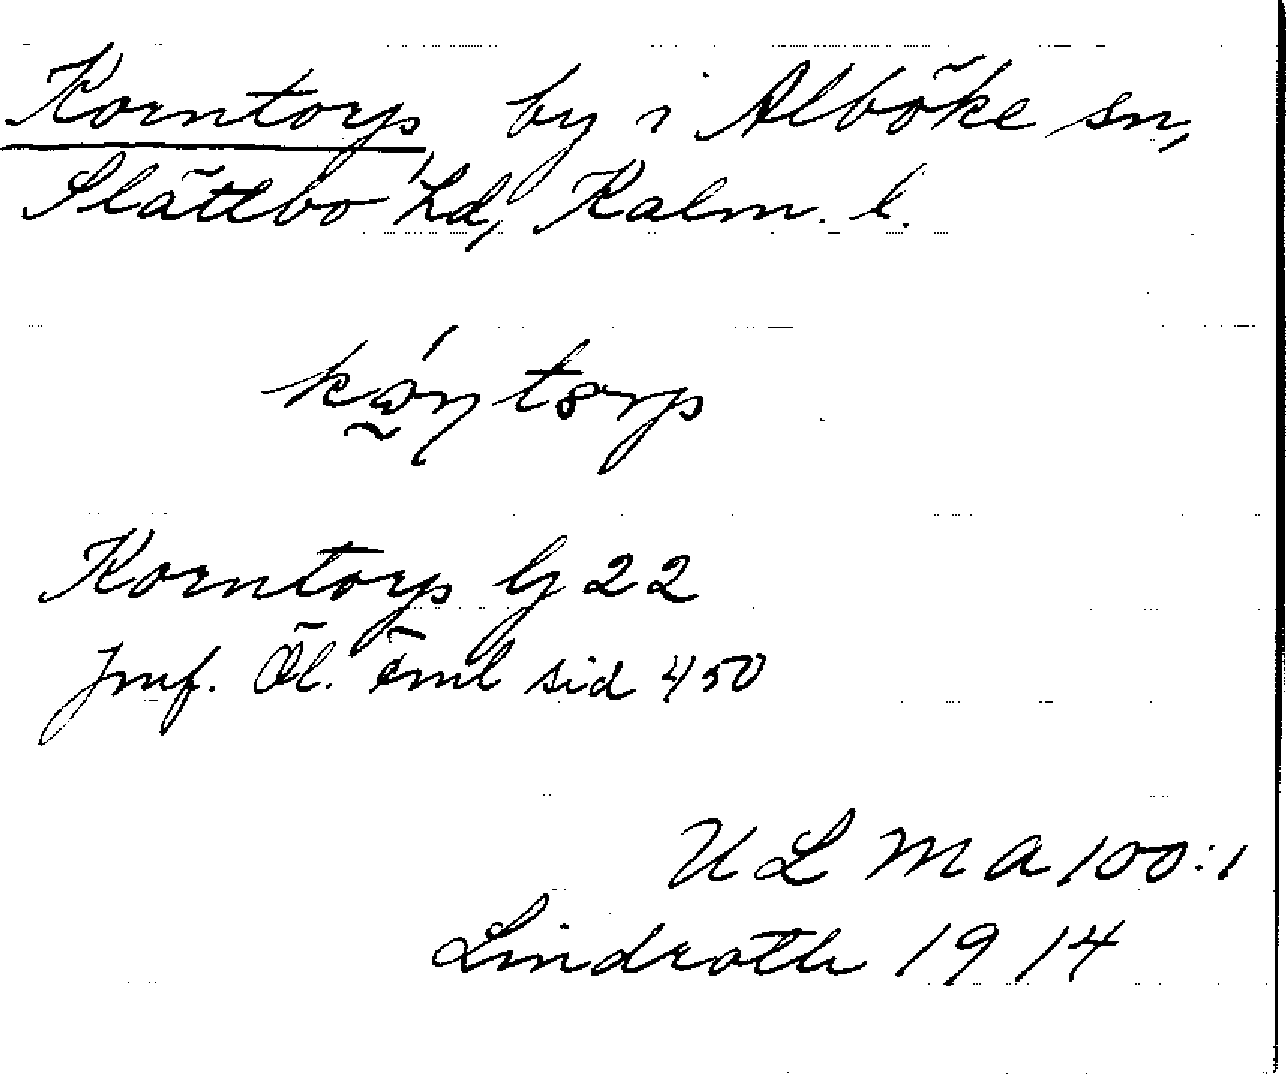 Korntorp by i Alböke sn,
Slättbo hd, Kalm. l.
Korntorp G 22
Jmf. Öl. sid 450
ULMA 100:1
Lindroth 1914